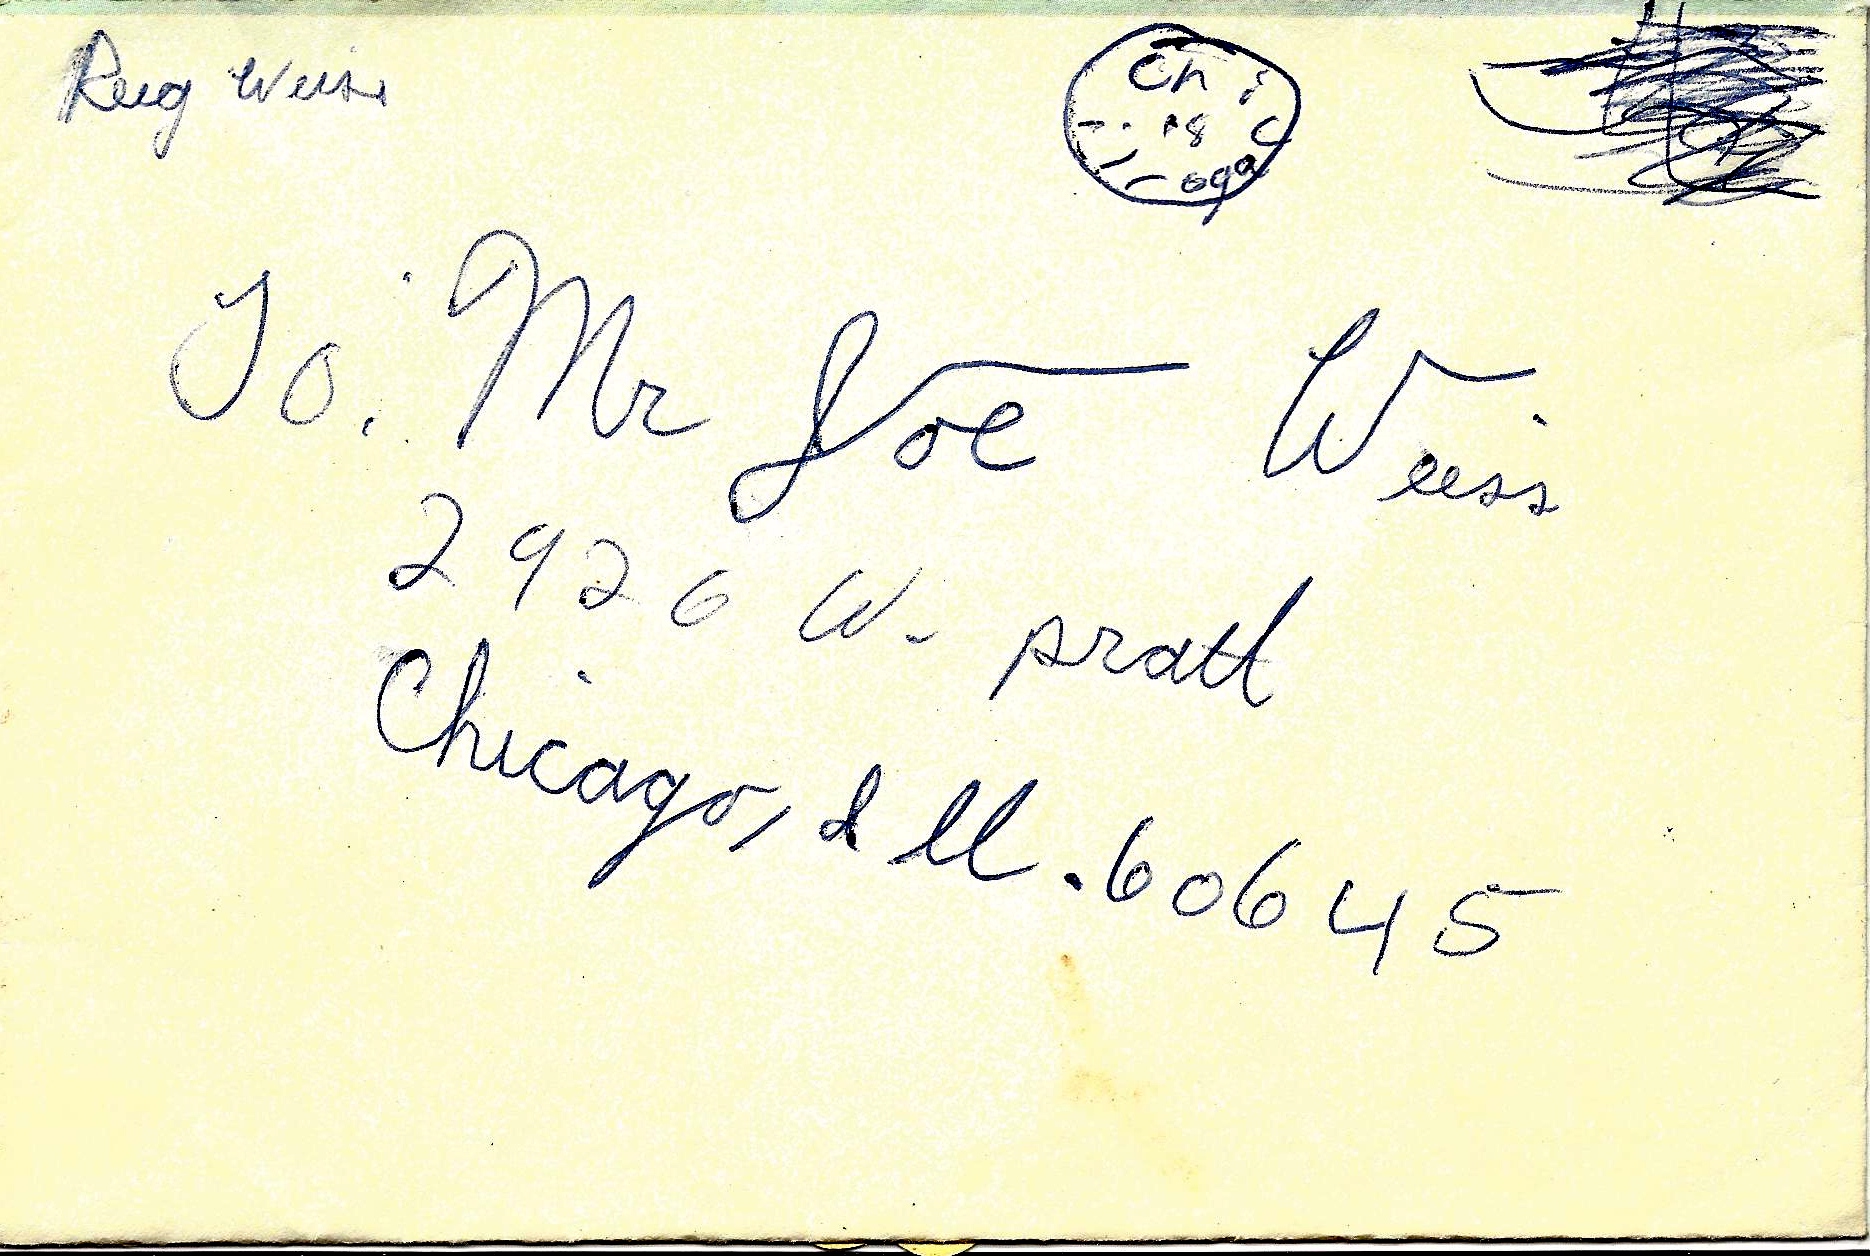 Weiss
Chicago
To: Mr Joe Weiss
2926 W. pratt
Chicago, Ill. 60645